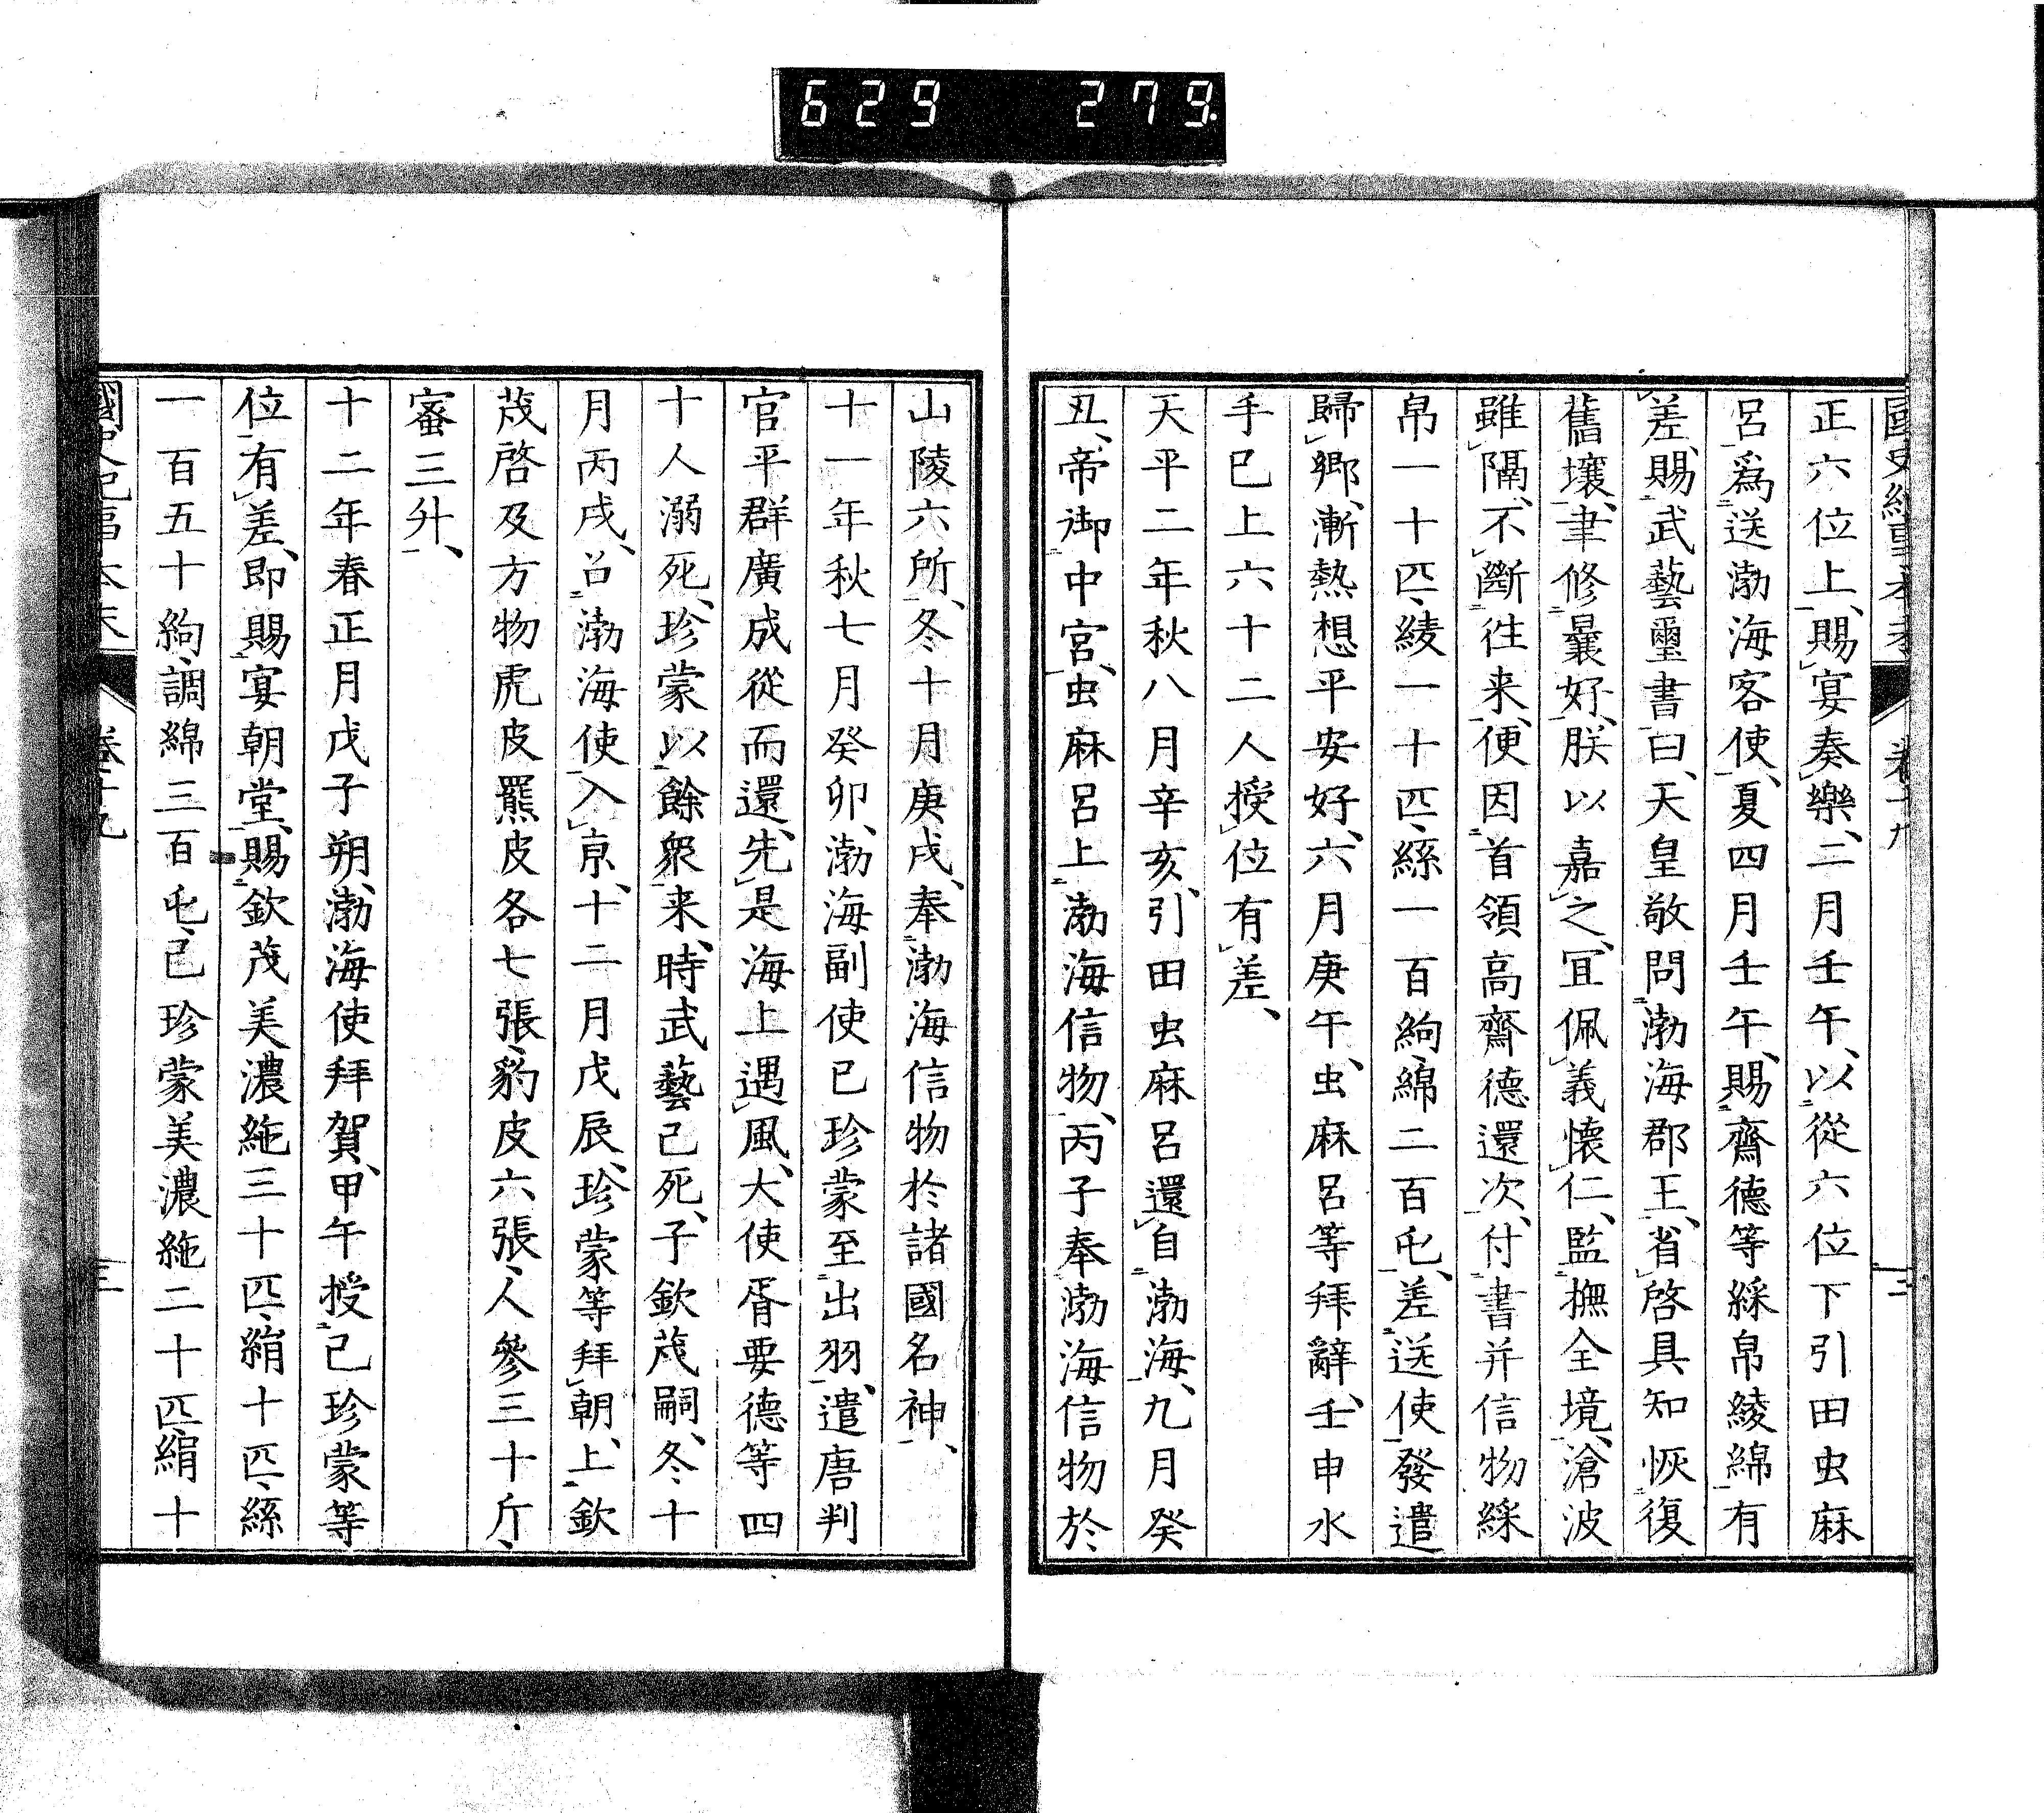 629 279.
正六位上、賜宴奏樂、二月壬午、以從六位下引田虫麻
呂爲送渤海客使、夏四月壬午、賜齋德等綵帛綾綿有
差、賜武藝璽書曰、天皇敬問渤海郡王、省啓具知恢復
舊壤、聿修曩好、朕以嘉之、冝佩義懐仁、監撫全境、滄波
雖隔、不斷徃来、便因首領高齋德還次、付書并信物綵
帛一十匹、綾一十匹、絲一百絇、綿二百屯、差送使發遣
歸郷、漸熱想平安好、六月庚午、虫麻呂等拜辭、壬申水
手已上六十二人授位有差、
天平二年秋八月辛亥、引田虫麻呂還自渤海、九月癸
丑、帝御中宮、虫麻呂上渤海信物、丙子奉渤海信物於
山陵六所、冬十月庚戌、奉渤海信物於諸國名神、
十一年秋七月癸卯、渤海副使已珍蒙至出羽、遣唐判
官平群廣成從而還、先是海上遇風、大使胥要德等四
十人溺死、珍蒙以餘衆来、時武藝已死、子欽茂嗣、冬十
月丙戌、召渤海使入京、十二月戊辰、珍蒙等拜朝、上欽
茂啓及方物虎皮羆皮各七張、豹皮六張、人參三十斤、
蜜三升、
十二年春正月戊子朔、渤海使拜賀、甲午授已珍蒙等
位有差、即賜宴朝堂、賜欽茂美濃絁三十匹、絹十匹、絲
一百五十絇、調綿三百屯、已珍蒙美濃絁二十匹、絹十